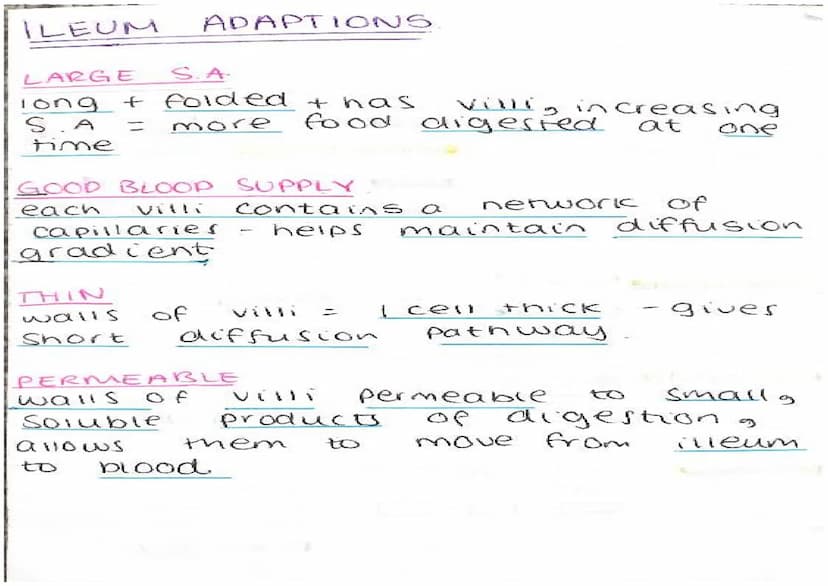 ILEUM ADAPTIONS
LARGE S.A.
long + folded + has villi, increasing
S.A = more food digested at one
time
GOOD BLOOD SUPPLY
each villi contains a network of
capillaries - helps maintain diffusion
gradient
THIN
walls of villi = 1 cell thick - gives
short diffusion pathway.
PERMEABLE
walls of villi permeable to small,
soluble products of digestion,
allows them to move from illeum
to blood.